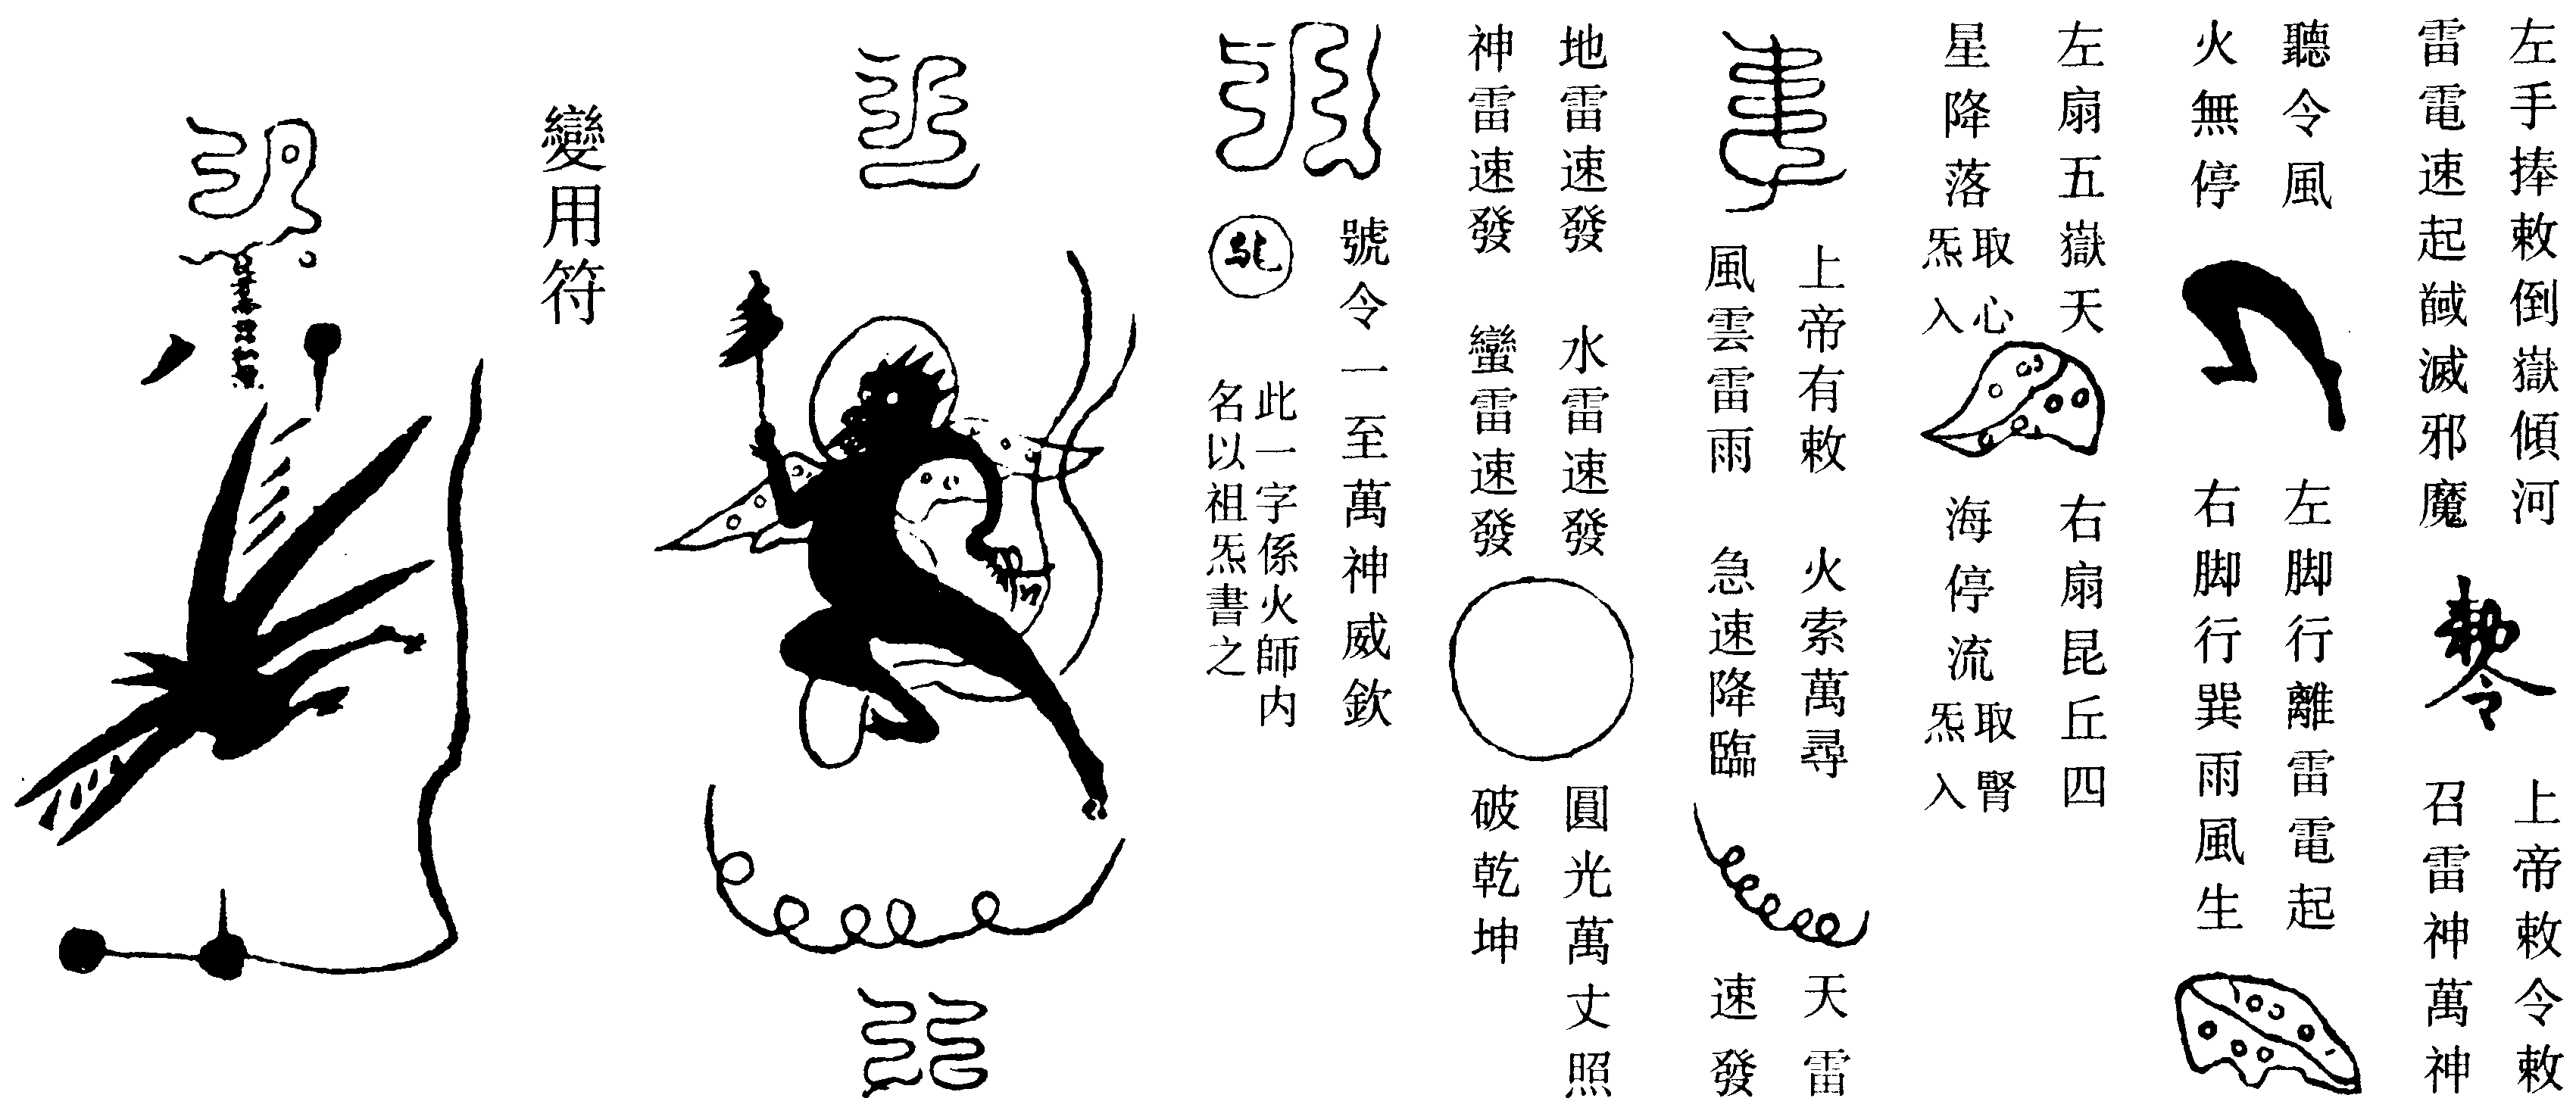 左手捧敕倒嶽傾河
雷電速起馘滅邪魔
上帝敕令敕
召雷神萬神
聽令風
火無停
左脚行離雷電起
右脚行巽雨風生
左扇五嶽天
星降落
取心
炁入
右扇昆丘四
海停流
取腎
炁入
上帝有敕
風雲雷雨
火索萬尋
急速降臨
天雷
速發
地雷速發
神雷速發
水雷速發
蠻雷速發
圓光萬丈照
破乾坤
號令一至萬神威欽
此一字係火師内
名以祖炁書之
變用符